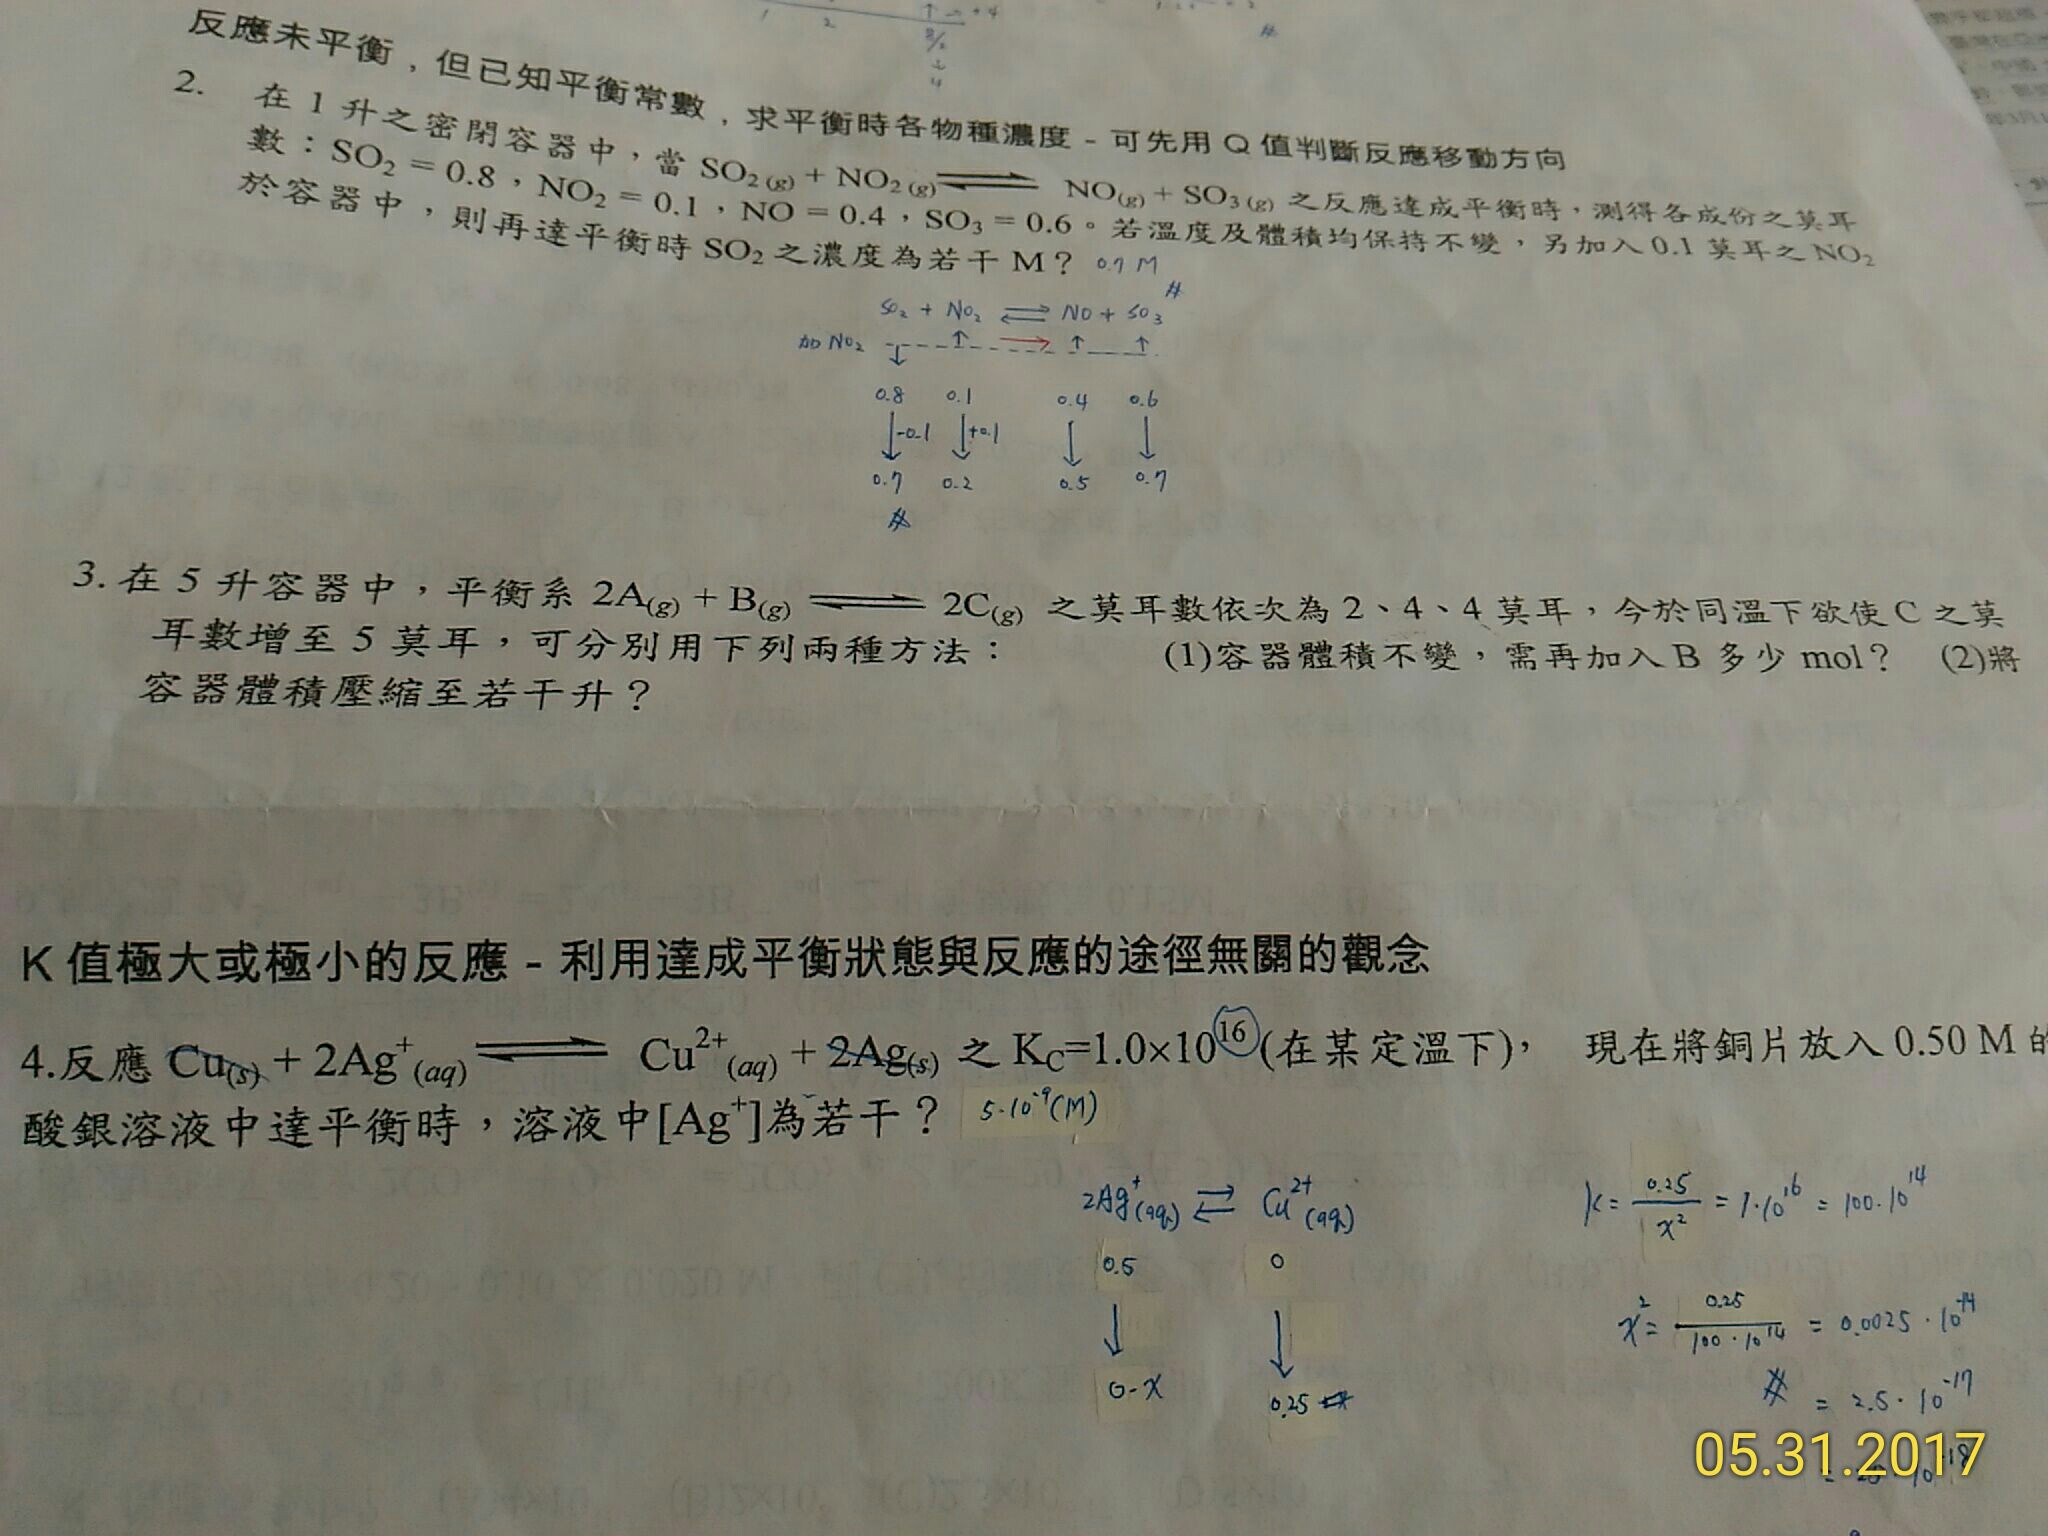 反應未平衡，但已知平衡常數，求平衡時各物種濃度 - 可先用 Q 值判斷反應移動方向
2. 在 1 升之密閉容器中，當 SO₂(g) + NO₂(g) ⇌ NO(g) + SO₃(g) 之反應達成平衡時，測得各成份之莫耳
數：SO₂ = 0.8，NO₂ = 0.1，NO = 0.4，SO₃ = 0.6。若溫度及體積均保持不變，另加入 0.1 莫耳之 NO₂
於容器中，則再達平衡時 SO₂ 之濃度為若干 M？ 0.7 M
SO₂ + NO₂ ⇌ NO + SO₃
加 NO₂
0.8 0.1 0.4 0.6
-0.1 +0.1
0.7 0.2 0.5 0.7
3. 在 5 升容器中，平衡系 2A(g) + B(g) ⇌ 2C(g) 之莫耳數依次為 2、4、4 莫耳，今於同溫下欲使 C 之莫
耳數增至 5 莫耳，可分別用下列兩種方法： (1)容器體積不變，需再加入 B 多少 mol？ (2)將
容器體積壓縮至若干升？
K 值極大或極小的反應 - 利用達成平衡狀態與反應的途徑無關的觀念
4.反應 Cu(s) + 2Ag⁺(aq) ⇌ Cu²⁺(aq) + 2Ag(s) 之 KC=1.0×10¹⁶ (在某定溫下)， 現在將銅片放入 0.50 M 的
酸銀溶液中達平衡時，溶液中[Ag⁺]為若干？ 5·10⁻⁹(M)
2Ag⁺(aq) ⇌ Cu²⁺(aq)
0.5 0
0-x 0.25
K = 0.25/x² = 1·10¹⁶ = 100·10¹⁴
x² = 0.25/100·10¹⁴ = 0.0025·10⁻¹⁴
= 2.5·10⁻¹⁷
05.31.2017